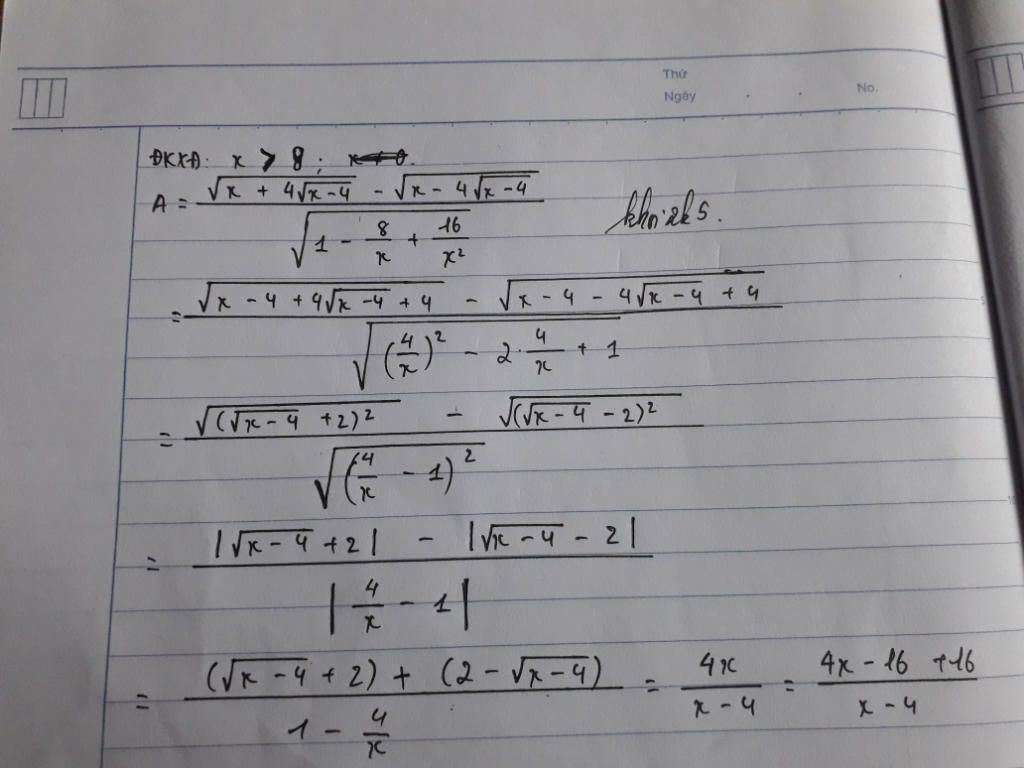 Thứ
Ngày . . No.
ĐKXĐ: x > 8;
A = (√(x + 4√(x-4)) - √(x - 4√(x-4))) / √(1 - 8/x + 16/x²)
= (√(x - 4 + 4√(x-4) + 4) - √(x - 4 - 4√(x-4) + 4)) / √((4/x)² - 2·4/x + 1)
= (√((√(x-4) + 2)²) - √((√(x-4) - 2)²)) / √((4/x - 1)²)
= (|√(x-4) + 2| - |√(x-4) - 2|) / |4/x - 1|
= ((√(x-4) + 2) + (2 - √(x-4))) / (1 - 4/x) = 4x/(x-4) = (4x - 16 + 16)/(x-4)